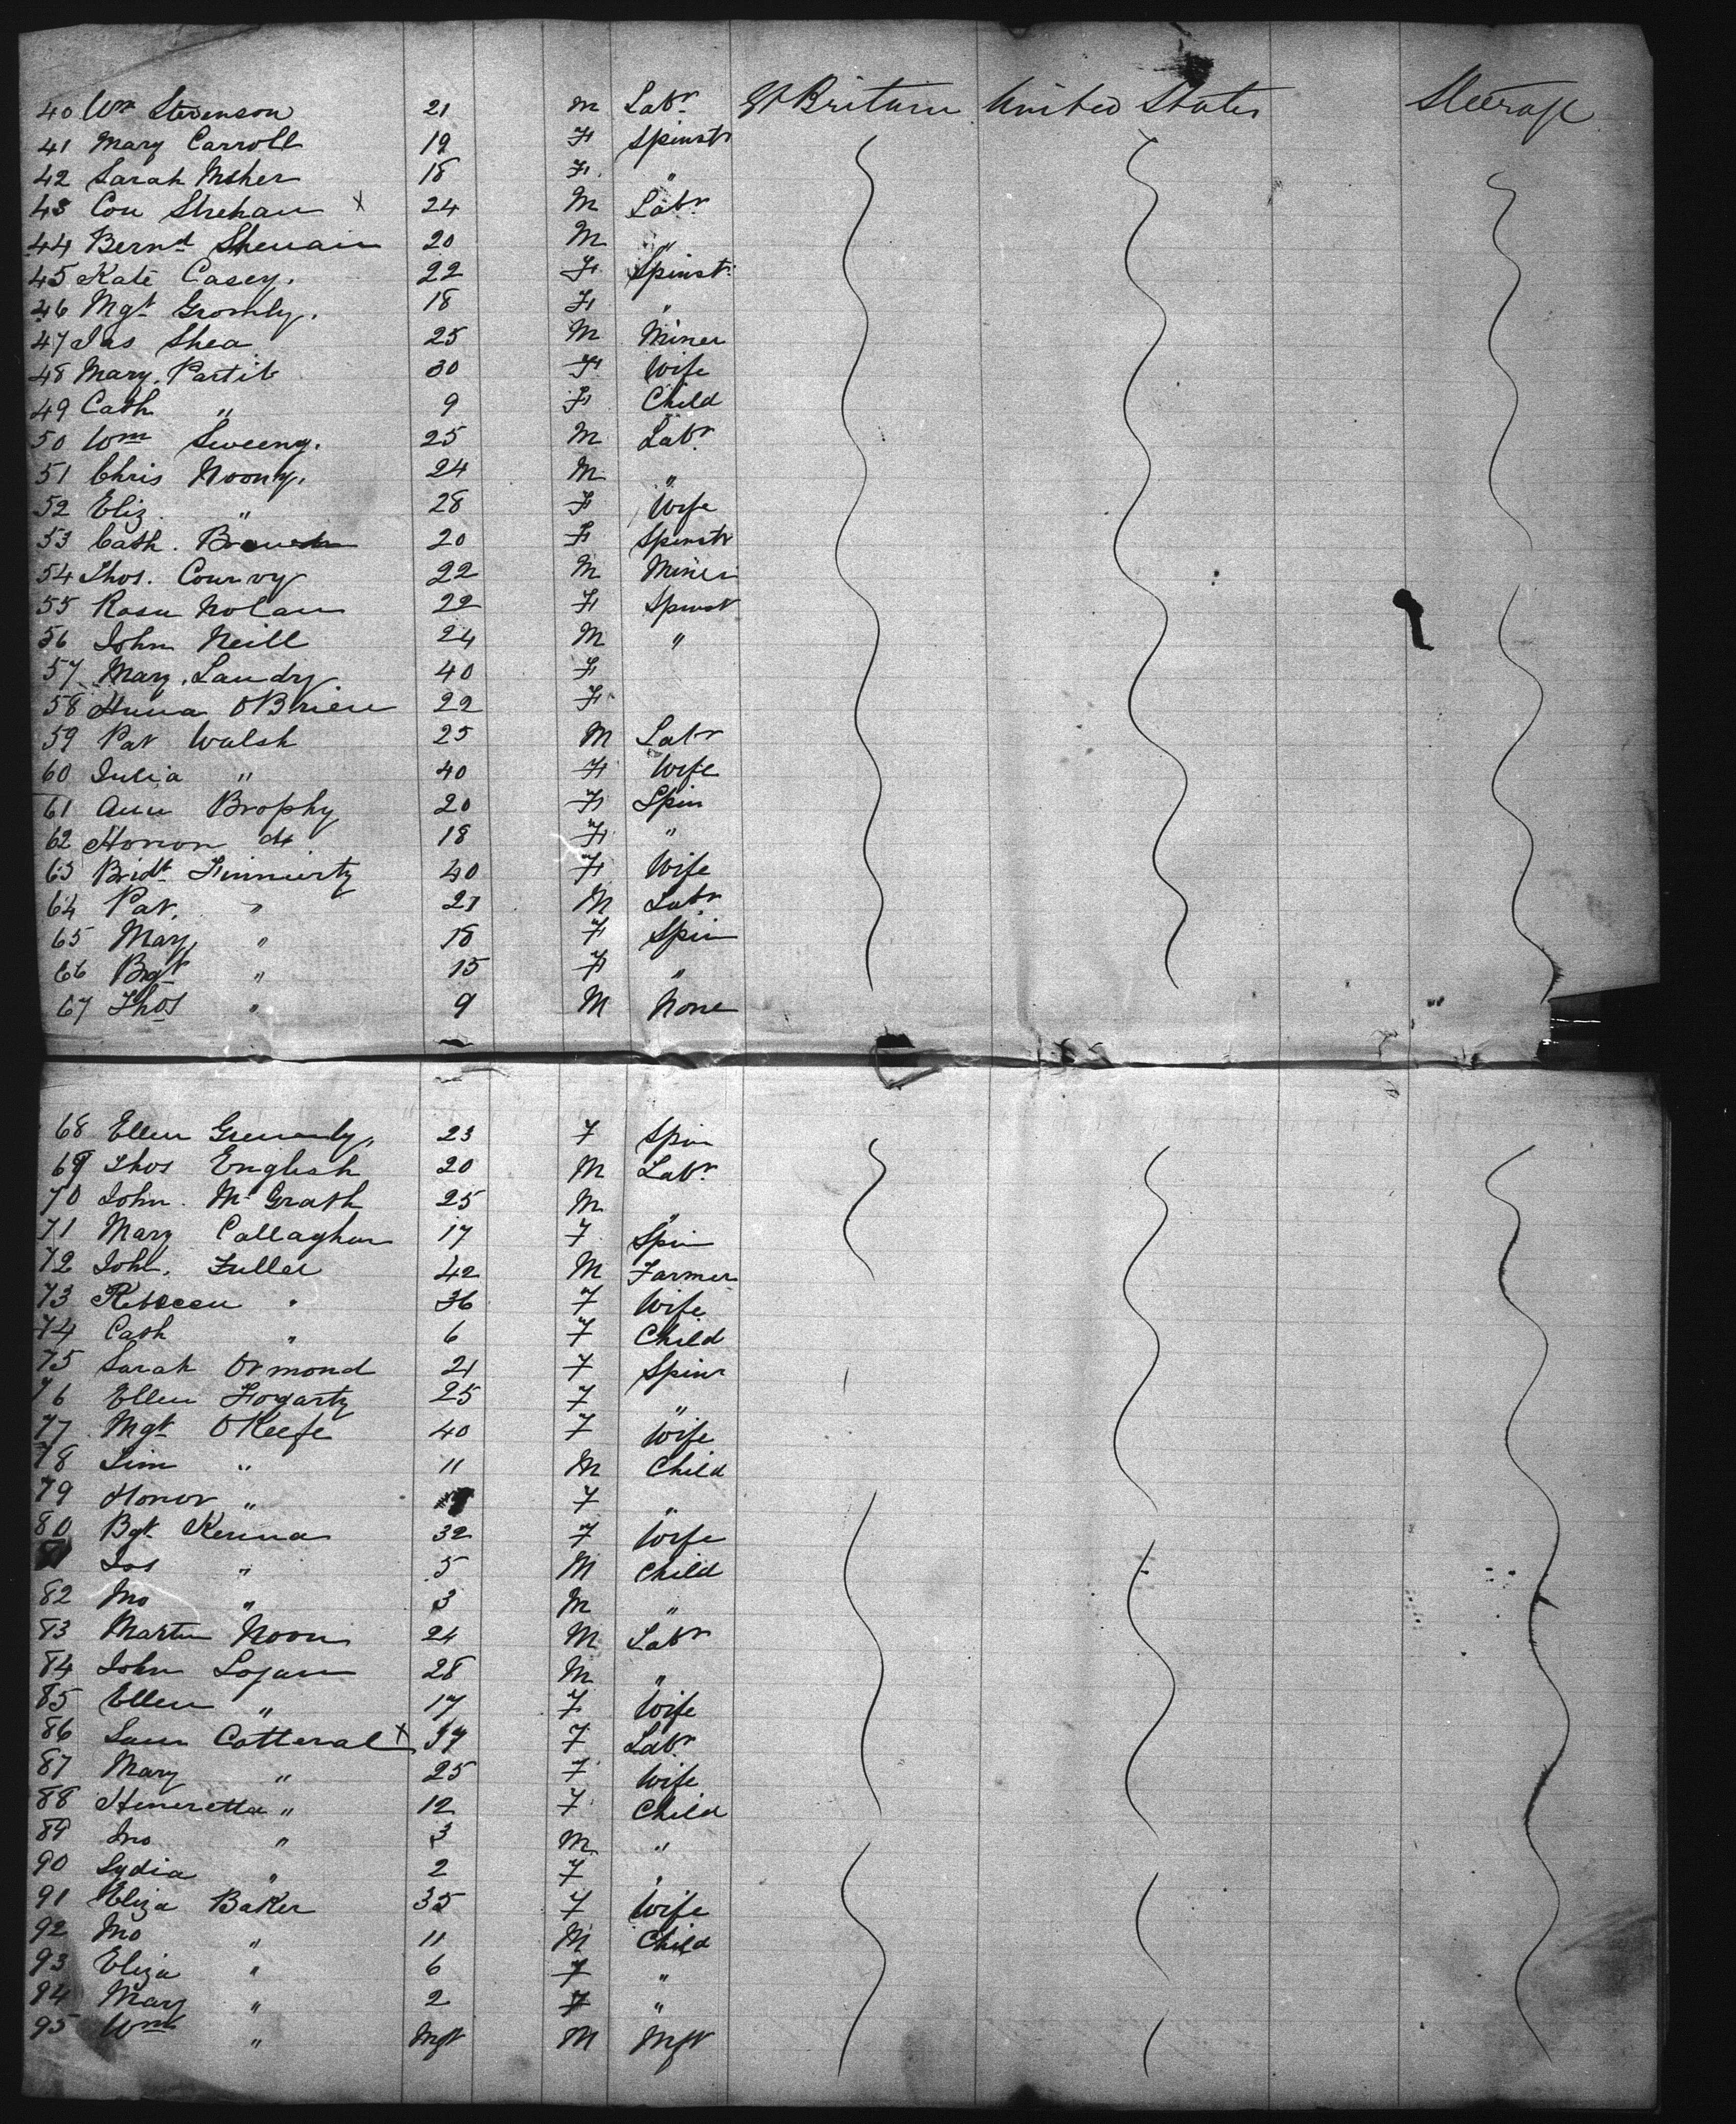 40 Wm Stevenson 21 M Labr Gt Britain United States Steerage
41 Mary Carroll 19 F Spinstr
42 Sarah 18 F "
43 Con Shehan x 24 M Labr
44 Bernd 20 M "
45 Kate Casey. 22 F Spinstr
46 Mgt 18 F "
47 Jas Shea 25 M Miner
48 Mary. Partib 30 F Wife
49 Cath " 9 F Child
50 Wm Sweeny. 25 M Labr
51 Chris Noony. 24 M "
52 Eliz. " 28 F Wife
53 Cath. 20 F Spinstr
54 Thos. 22 M Miner
55 Rosa Nolan 22 F Spinst
56 John Neill 24 M "
57 Mary. Landry 40 F
58 OBrien 22 F
59 Pat Walsh 25 M Labr
60 Julia " 40 F Wife
61 Ann Brophy 20 F Spin
62 Honor do 18 F "
63 Bridt 40 F Wife
64 Pat. " M Labr
65 Mary " 18 F Spin
66 Bgt " 15 F "
67 Thos " 9 M None
68 Ellen 23 F Spin
69 Thos English 20 M Labr
70 John. McGrath 25 M "
71 Mary Callaghan 17 F Spin
72 Fuller 42 M Farmer
73 Rebecca " 36 F Wife
74 Cath " 6 F Child
75 Sarah Ormond 21 F Spinr
76 Ellen Fogarty 25 F "
77 Mgt OKeefe 40 F Wife
78 Sim " 11 M Child
79 Honor " F "
80 Bgt Kenna 32 F Wife
Jas " 5 M Child
82 Jno " 3 M "
83 Martin Noon 24 M Labr
84 John Logan 28 M "
85 Ellen " 17 F Wife
86 Sam Cotteral x 37 F Labr
87 Mary " 25 F Wife
88 Heneretta " 12 F Child
89 Jno " 3 M "
90 Lydia " 2 F "
91 Eliza Baker 35 F Wife
92 Jno " 11 M Child
93 Eliza " 6 F "
94 Mary " 2 F "
95 Wm " M